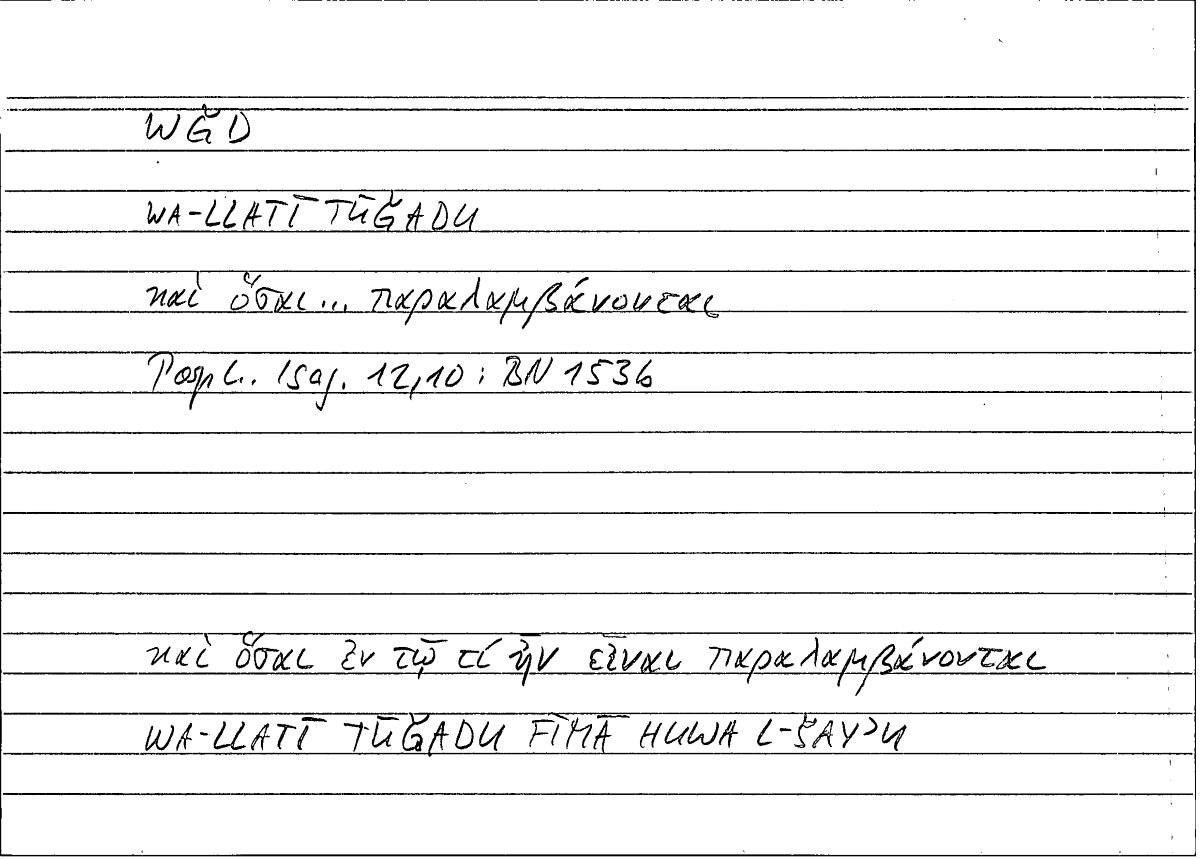 WĞD
WA-LLATĪ TŪĞADU
καὶ ὅσαι... παραλαμβάνονται
Porph. Isag. 12,10 : BN 1536
καὶ ὅσαι ἐν τῷ τί ἦν εἶναι παραλαμβάνονται
WA-LLATĪ TŪĞADU FĪMĀ HUWA L-ŠAYʾU